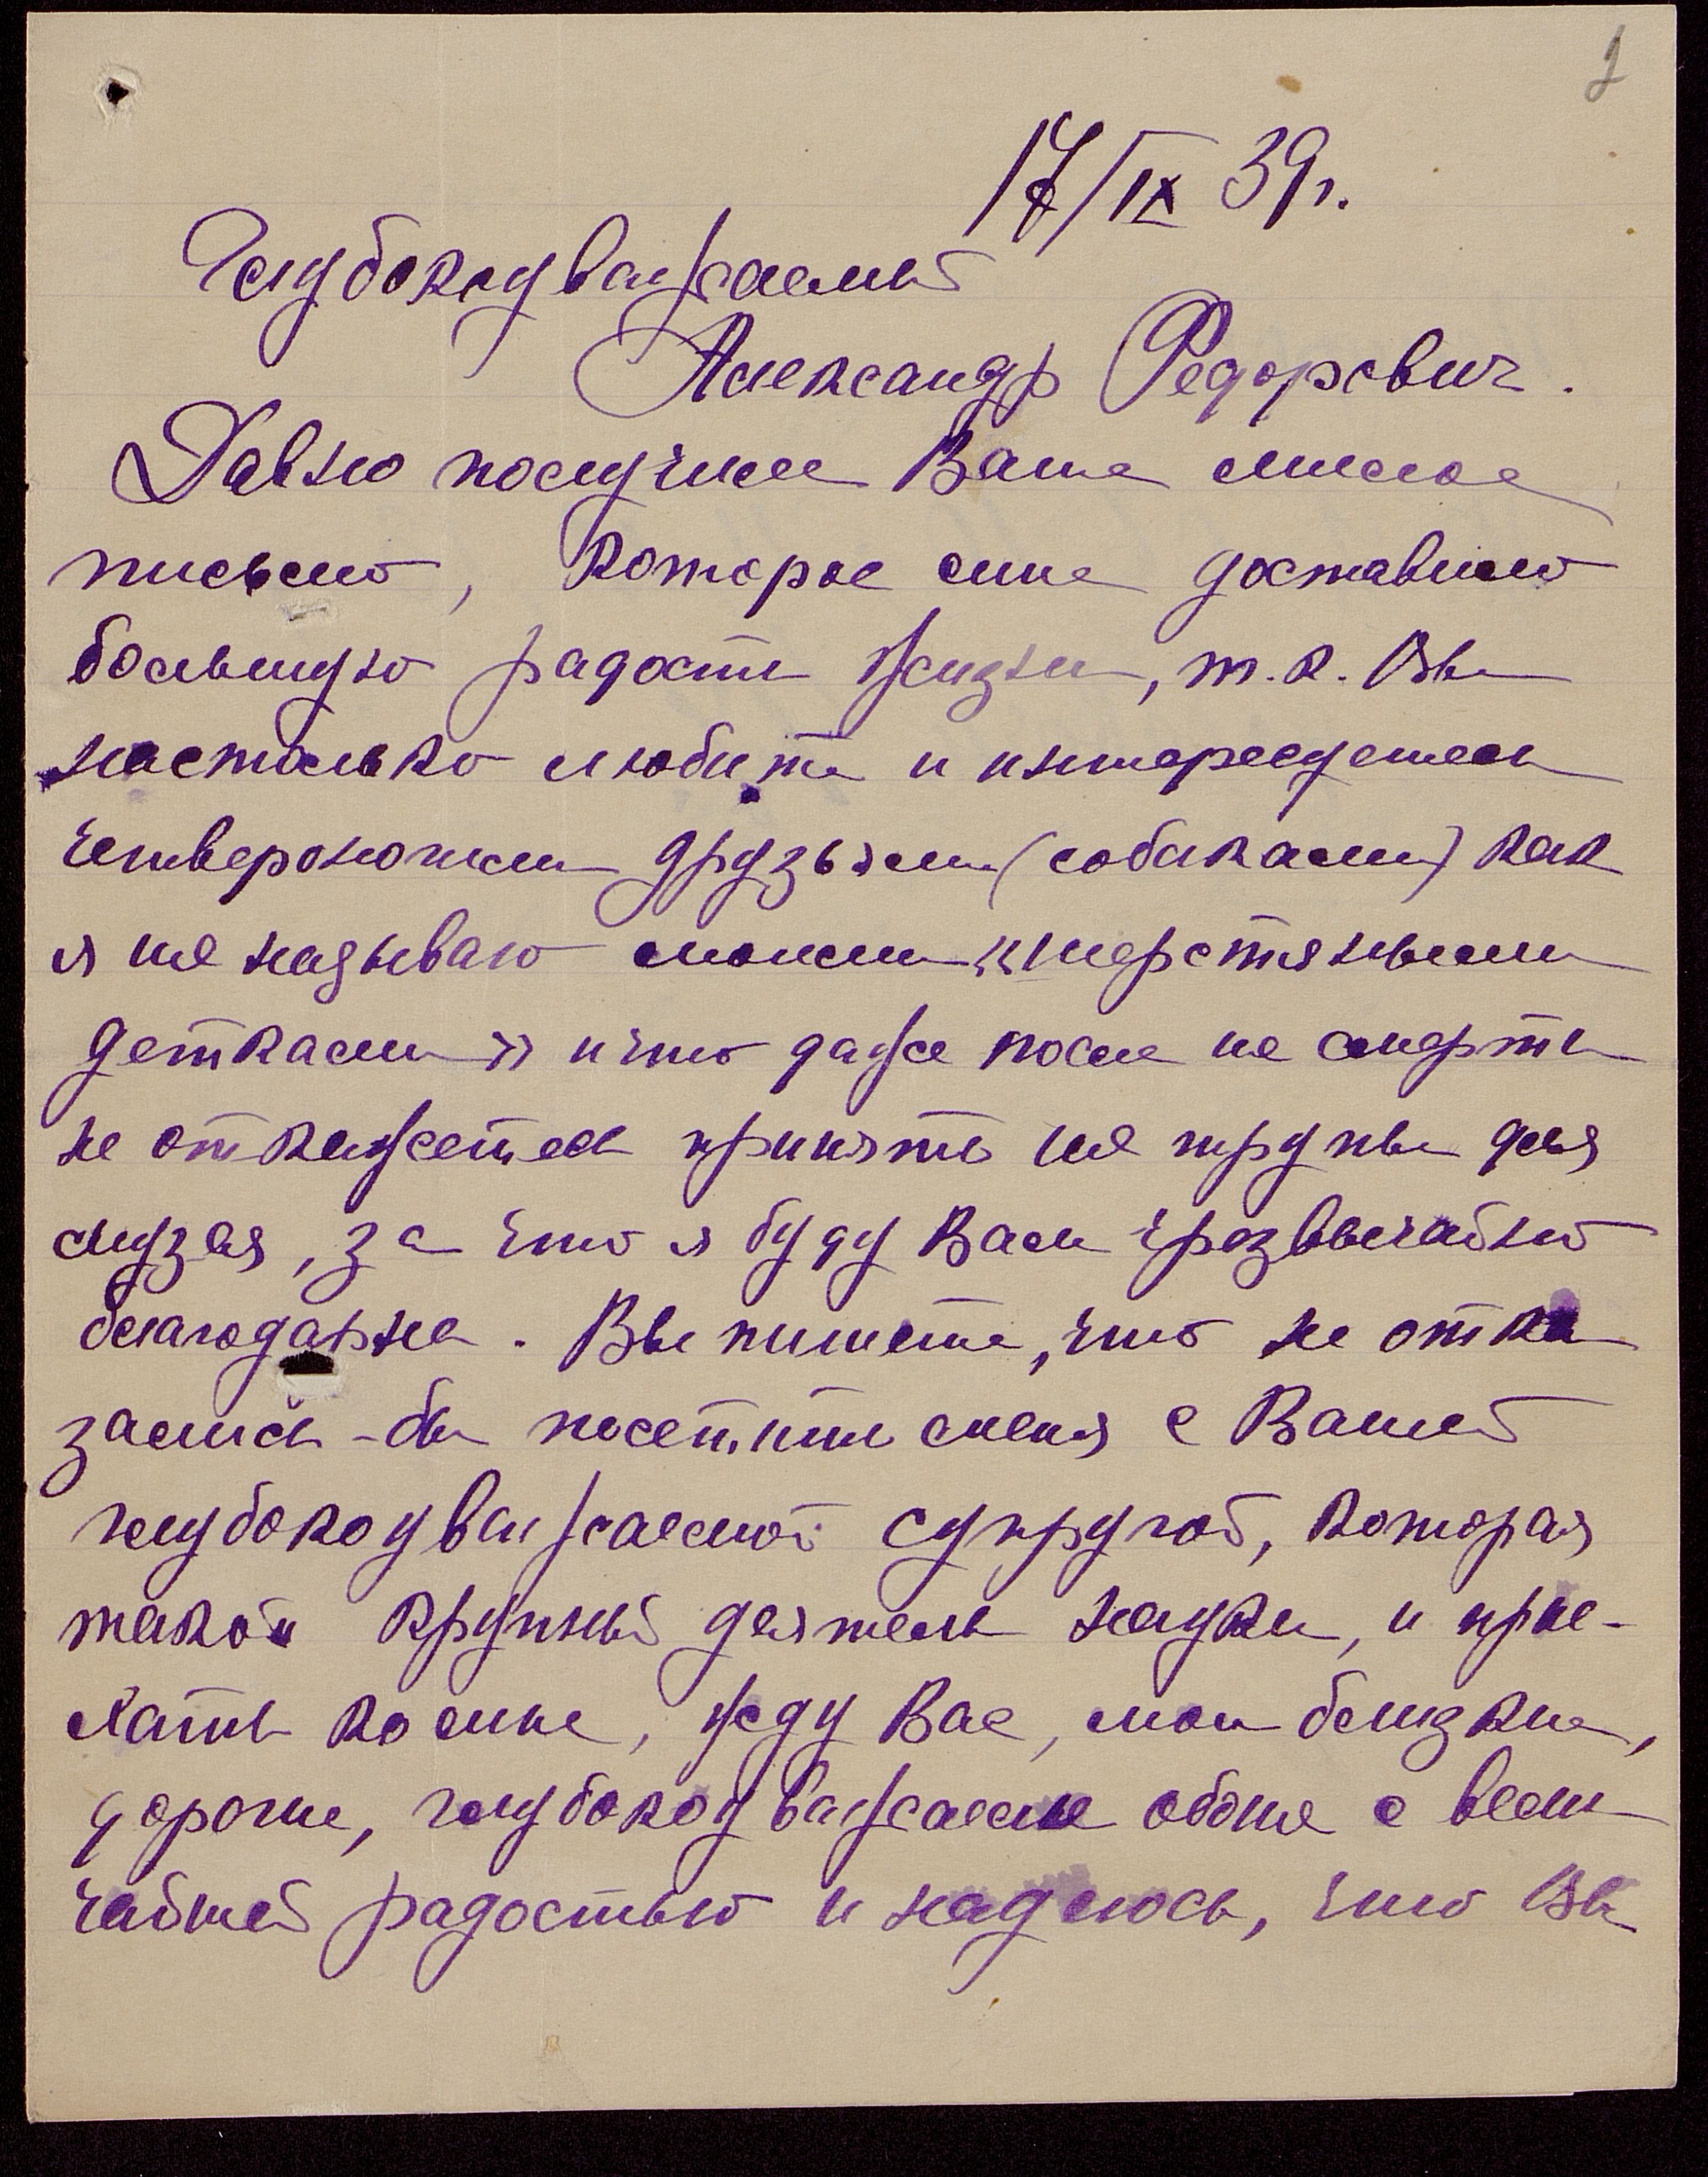 1
17/IX 39г.
Глубокоуважаемый
Александр Федорович.
Давно получила Ваше милое
письмо, которое мне доставило
большую радость жизни, т.к. Вы
настолько любите и интересуетесь
четвероногими друзьями (собаками) как
я их называю моими «шерстяными
детками» и что даже после их смерти
не откажетесь принять их трупы для
музея, за что я буду Вам чрезвычайно
благодарна. Вы пишете, что не отка
зались-бы посетить меня с Вашей
глубокоуважаемой супругой, которая
такой крупный деятель науки, и прие-
хать ко мне, жду Вас, мои близкие,
дорогие, глубокоуважаемые обоих с вели
чайшей радостью и надеюсь, что Вы